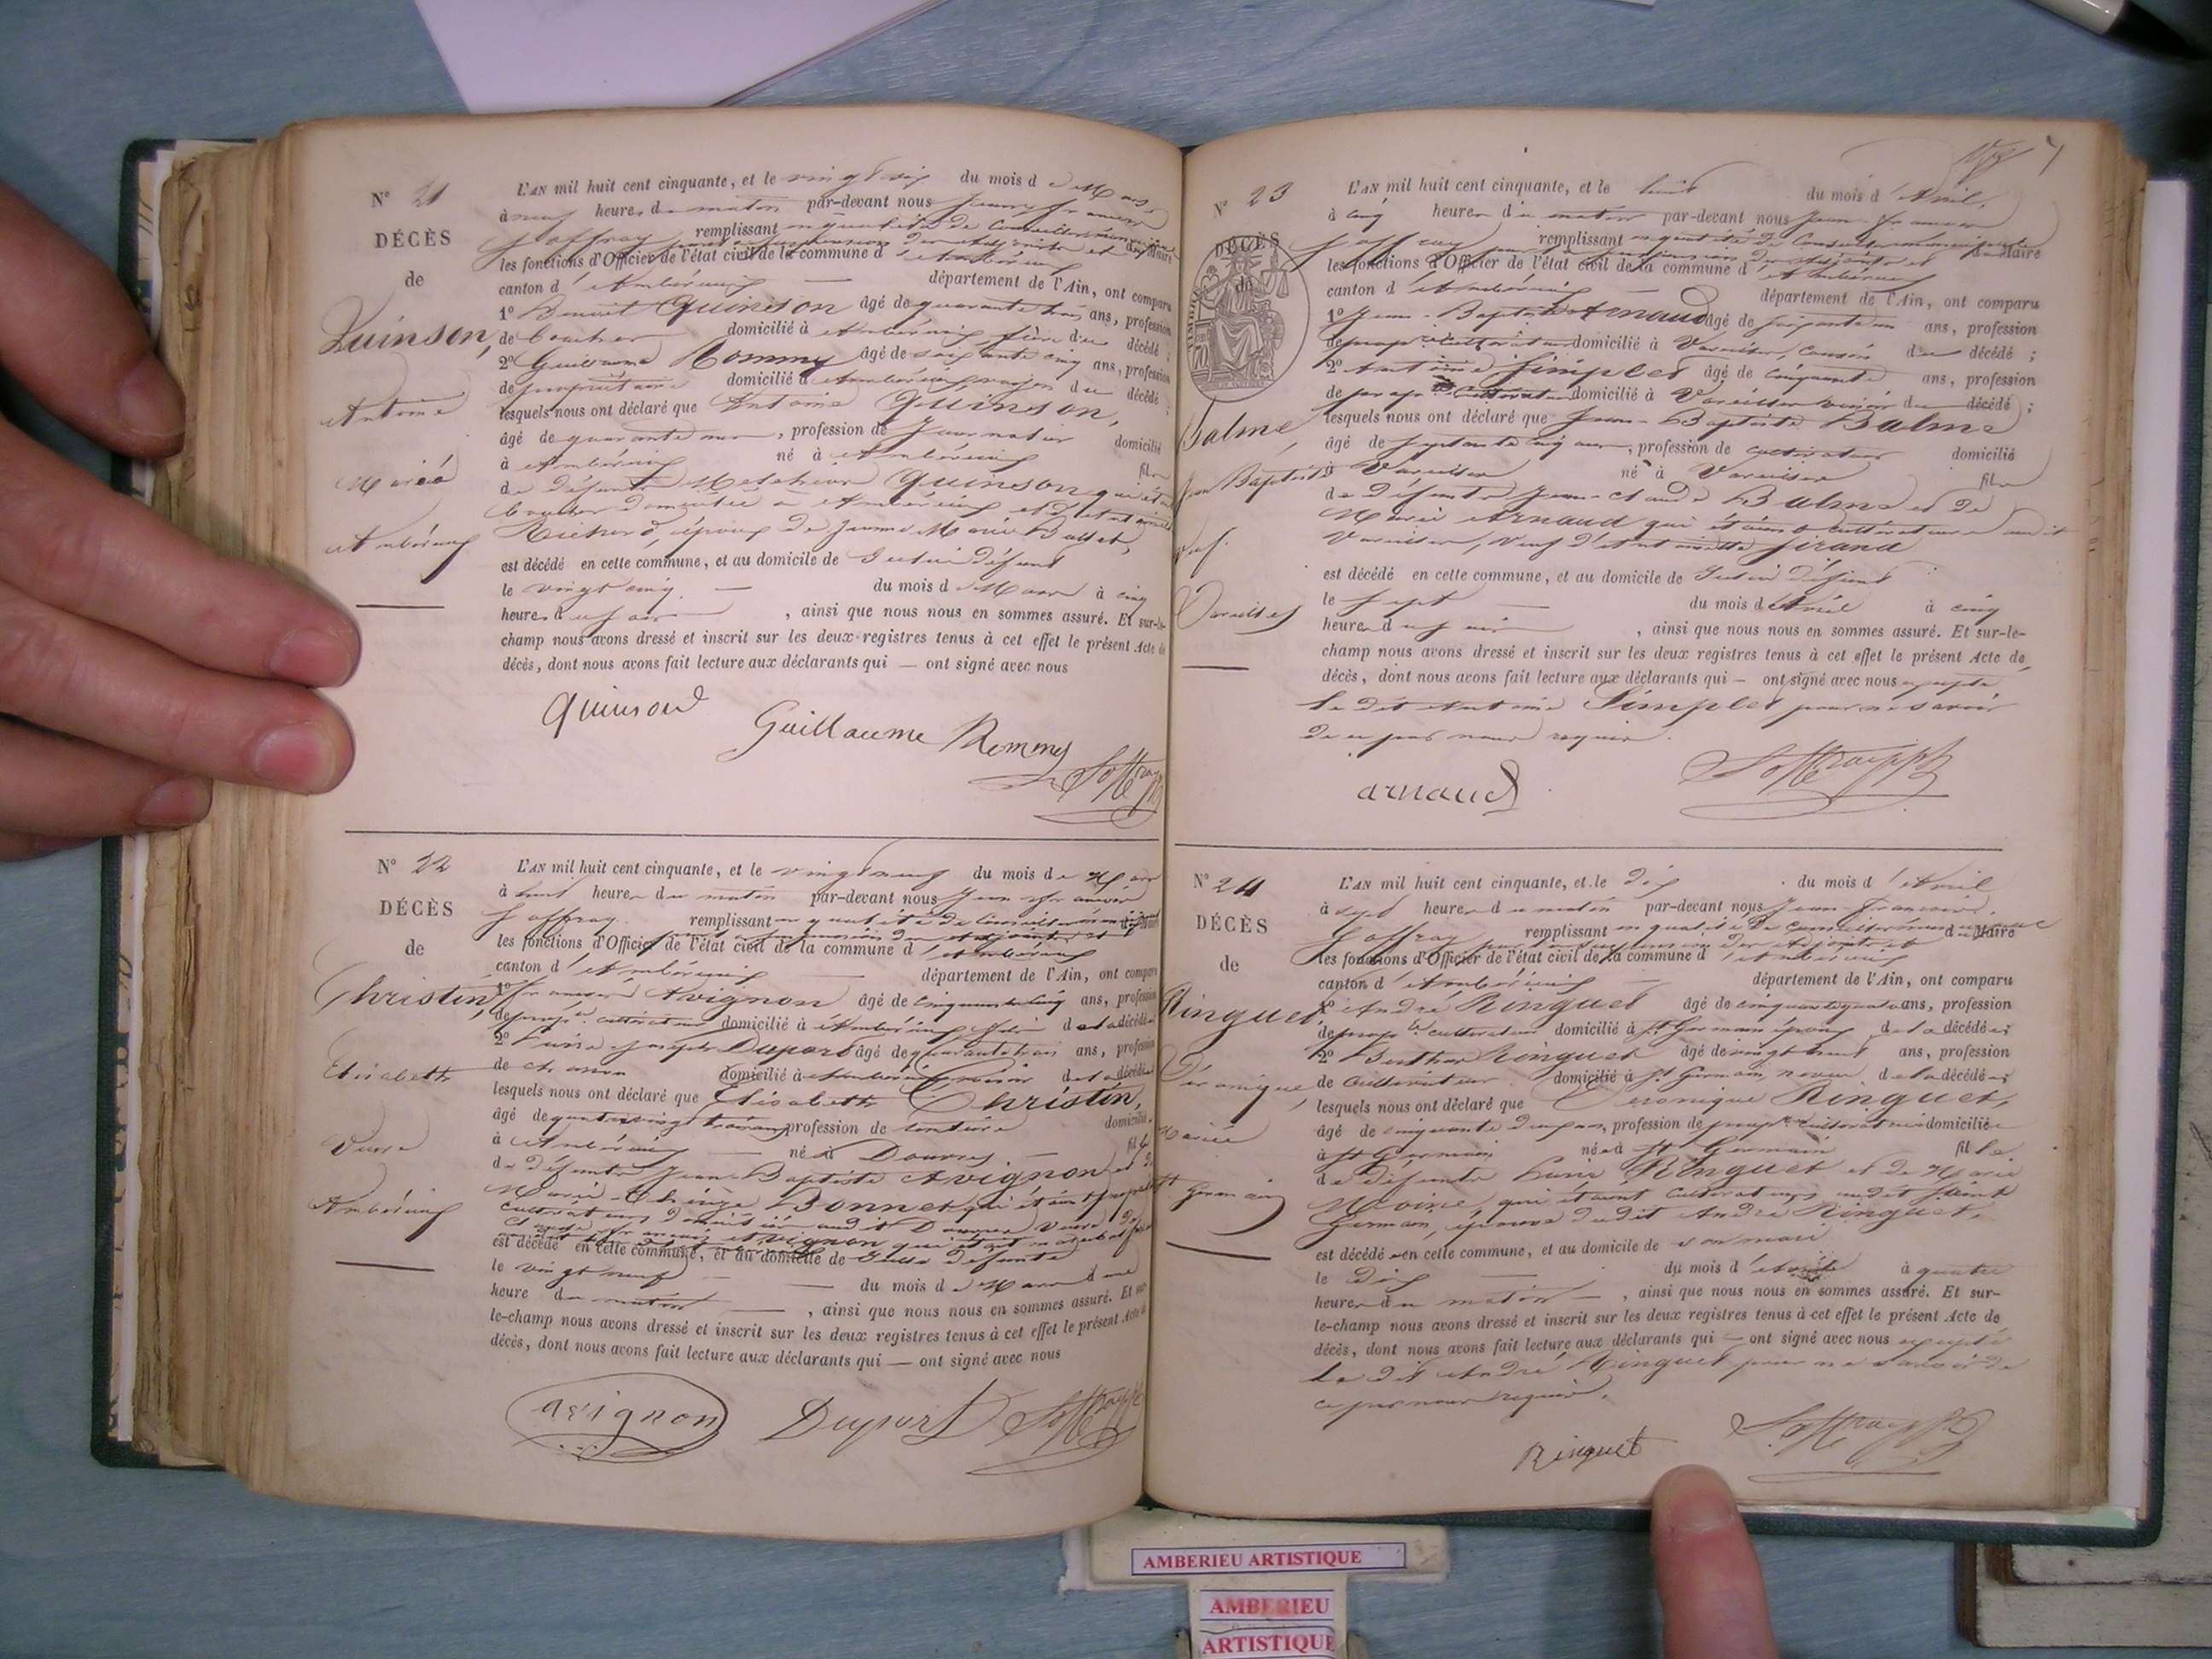 N° 21
DÉCÈS
de
Quinson,
Antoine
Marié
Ambérieux
L'AN mil huit cent cinquante, et le vingt six du mois de Mars
à neuf heures du matin par-devant nous Jean François
Joffray remplissant en qualité de Conseiller municipal
les fonctions d'Officier de l'état civil de la commune d'Ambérieux
canton d'Ambérieux département de l'Ain, ont comparu
1° Benoit Quinson âgé de quarante trois ans, profession
de boucher domicilié à Ambérieux, frère du décédé ;
2° Guillaume Rommy âgé de soixante cinq ans, profession
de propriétaire domicilié à Ambérieux du décédé ;
lesquels nous ont déclaré que Antoine Quinson,
âgé de quarante , profession de Journalier domicilié
à Ambérieux né à Ambérieux fils
de défunts Melchior Quinson qui était
domicilié à Ambérieux et
Richard, époux de Jeanne Marie Ballet,
est décédé en cette commune, et au domicile de Ledit défunt
le vingt cinq du mois de Mars à cinq
heures du soir , ainsi que nous nous en sommes assuré. Et sur-le-
champ nous avons dressé et inscrit sur les deux registres tenus à cet effet le présent Acte de
décès, dont nous avons fait lecture aux déclarants qui — ont signé avec nous
Quinson
Guillaume Rommy
Joffray
N° 22
DÉCÈS
de
Christin,
Elisabeth
Veuve
Ambérieux
L'AN mil huit cent cinquante, et le vingt neuf du mois de Mars
à huit heures du matin par-devant nous Jean François
Joffray remplissant en qualité de Conseiller municipal
les fonctions d'Officier de l'état civil de la commune d'Ambérieux
canton d'Ambérieux département de l'Ain, ont comparu
1° François Avignon âgé de cinquante cinq ans, profession
de prop.re cultivateur domicilié à Ambérieux, fils de la décédée
2° Joseph Duport âgé de quarante trois ans, profession
de domicilié à Ambérieux, voisin de la décédée
lesquels nous ont déclaré que Elisabeth Christin,
âgé de quatre vingt trois ans, profession de domiciliée
à Ambérieux née à Douvres fille
de défunts Jean-Baptiste Avignon et de
Marie-Thérèze Bonnet qui étaient
cultivateurs domiciliés audit Douvres, Veuve de
François Avignon qui était
est décédé en cette commune, et au domicile de Ladite défunte
le vingt neuf du mois de Mars à une
heure du matin , ainsi que nous nous en sommes assuré. Et sur-
le-champ nous avons dressé et inscrit sur les deux registres tenus à cet effet le présent Acte de
décès, dont nous avons fait lecture aux déclarants qui — ont signé avec nous
avignon Duport Joffray
N° 23
DÉCÈS
de
Balme,
Jean Baptiste
Veuf.
Vareilles
L'AN mil huit cent cinquante, et le huit du mois d'Avril,
à cinq heures du matin par-devant nous Jean-François
Joffray remplissant en qualité de Conseiller municipal Maire
les fonctions d'Officier de l'état civil de la commune d'Ambérieux
canton d'Ambérieux département de l'Ain, ont comparu
1° Jean-Baptiste Arnaud âgé de soixante un ans, profession
de prop.re cultivateur domicilié à Vareilles, Cousin du décédé ;
2° Antoine Simplet âgé de cinquante ans, profession
de prop.re cultivateur domicilié à Vareilles voisin du décédé ;
lesquels nous ont déclaré que Jean-Baptiste Balme
âgé de septante cinq ans, profession de cultivateur domicilié
à Vareilles né à Vareilles fils
de défunts Jean-Claude Balme et de
Marie Arnaud qui étaient cultivateurs audit
Vareilles, Veuf d'Antoinette Girand
est décédé en cette commune, et au domicile de Ledit défunt
le sept du mois d'Avril à cinq
heures du soir , ainsi que nous nous en sommes assuré. Et sur-le-
champ nous avons dressé et inscrit sur les deux registres tenus à cet effet le présent Acte de
décès, dont nous avons fait lecture aux déclarants qui — ont signé avec nous excepté
le dit Antoine Simplet pour ne savoir
de ce par nous requis.
arnaud
Joffray
N° 24
DÉCÈS
de
Ringuet,
Véronique,
Mariée
St Germain
L'AN mil huit cent cinquante, et le dix du mois d'Avril
à sept heures du matin par-devant nous Jean-François
Joffray remplissant en qualité de Conseiller municipal Maire
les fonctions d'Officier de l'état civil de la commune d'Ambérieux
canton d'Ambérieux département de l'Ain, ont comparu
1° André Ringuet âgé de cinquante quatre ans, profession
de prop.re cultivateur domicilié à St Germain époux de la décédée
2° Ringuet âgé de vingt huit ans, profession
de Cultivateur domicilié à St Germain, neveu de la décédée
lesquels nous ont déclaré que Véronique Ringuet,
âgé de cinquante deux ans, profession de prop.re cultivatrice domiciliée
à St Germain née à St Germain fille
de défunts Ringuet et de Marie
Moine, qui étaient Cultivateurs audit Saint
Germain, épouse dudit André Ringuet,
est décédée en cette commune, et au domicile de son mari
le Dix du mois d'Avril à quatre
heures du matin , ainsi que nous nous en sommes assuré. Et sur-
le-champ nous avons dressé et inscrit sur les deux registres tenus à cet effet le présent Acte de
décès, dont nous avons fait lecture aux déclarants qui — ont signé avec nous excepté
le dit André Ringuet pour ne savoir de
ce par nous requis.
Ringuet
Joffray
AMBERIEU ARTISTIQUE
AMBERIEU
ARTISTIQUE